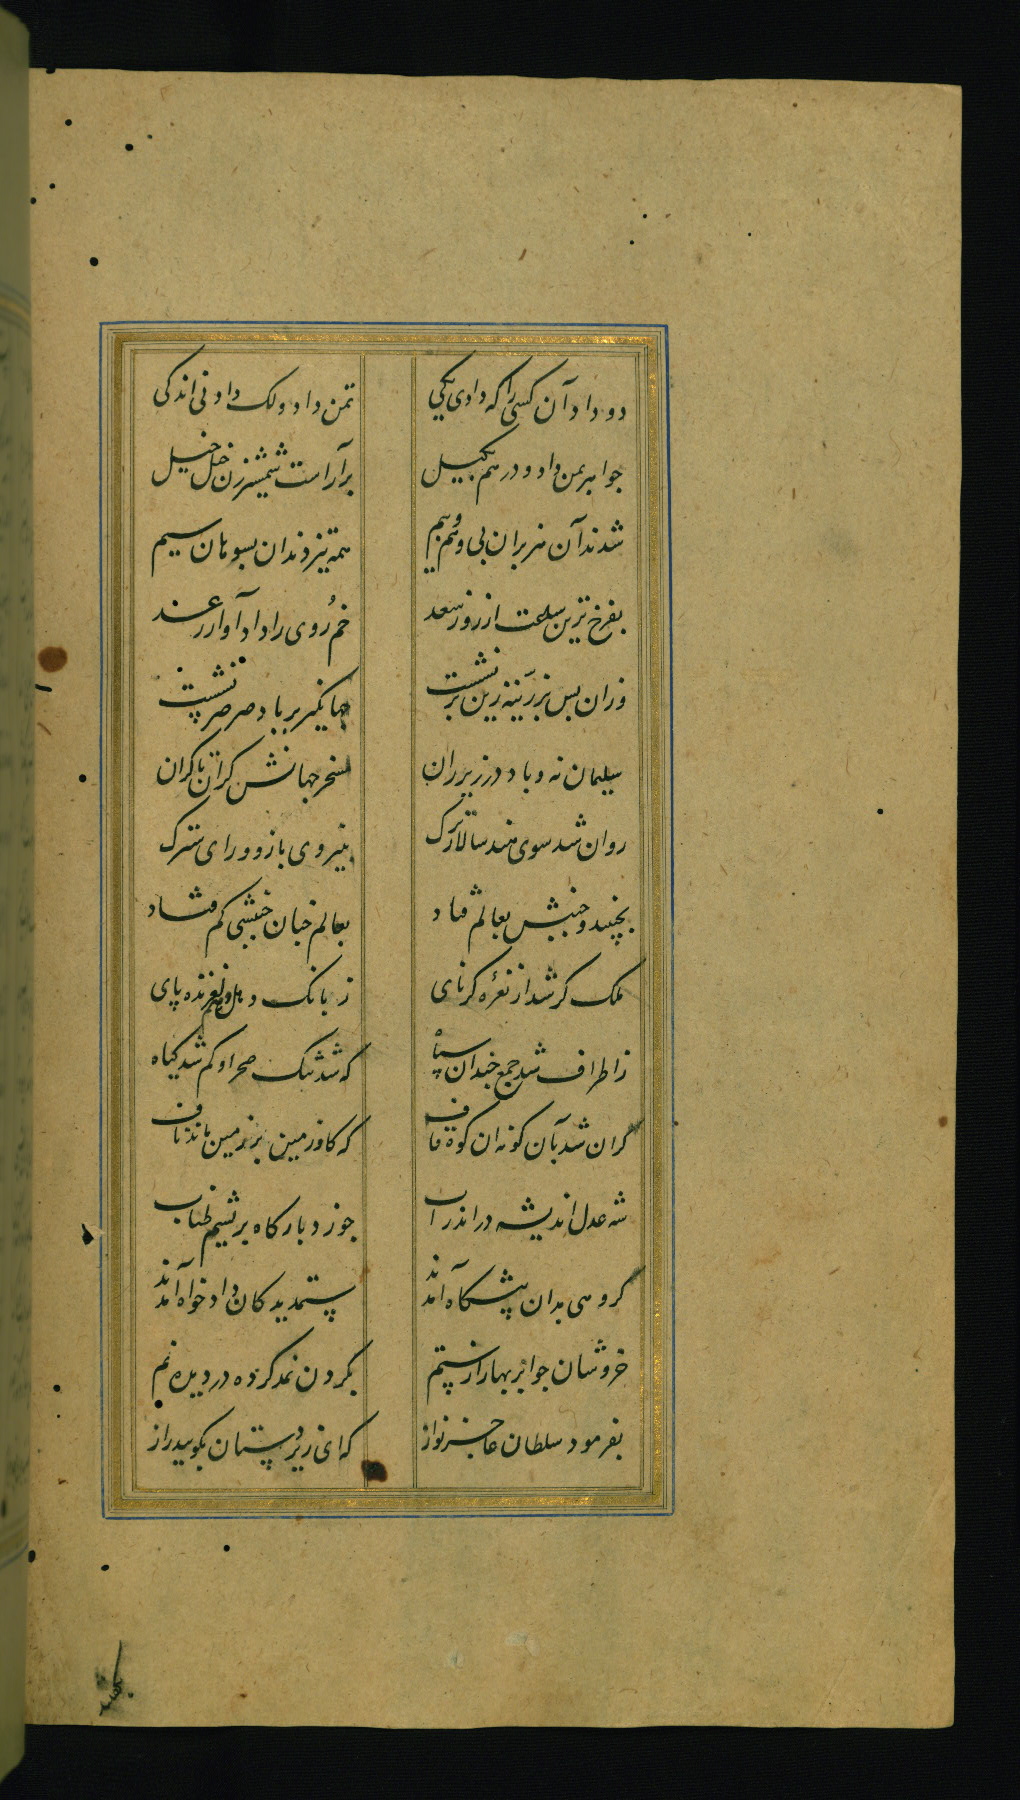 دو داد آن کسی را که دادی یکی تمن داد و لک داد نی اندکی
جواهر بمن داد و درهم بکیل برآراست شمشیرزن خیل خیل
شدند آن هزبران بی وهم و بیم همه تیز دندان بسوهان سیم
بفرخ ترین ساعت از روز سعد خم روی را داد آواز رعد
وزان پس بزرینه زین برنشست جهانگیر بر باد صرصر نشست
سلیمان نه و باد در زیر ران مسخر جهانش کران تا کران
روان شد سوی هند سالار ترک بنیروی بازو و رای سترک
بجنبید و جنبش بعالم فتاد بعالم چنان جنبشی کم فتاد
ملک کر شد از نعره کرنای ز بانک دهل لغزنده پای
ز اطراف شد جمع چندان سپاه که شد تنک صحرا و کم شد کیاه
کران شد بآن کونه ان کوه قاف که کاو زمین بر زمین ماند ناف
شه عدل اندیشه در اندراب چو زد بارکاه بریشم طناب
کروهی بدان پیشکاه آمدند ستمدیدکان داد خواه آمدند
خروشان چو ابر بهار از ستم بکردن نمد کرده در دیده نم
بفرمود سلطان عاجز نواز که ای زیردستان بکویید راز